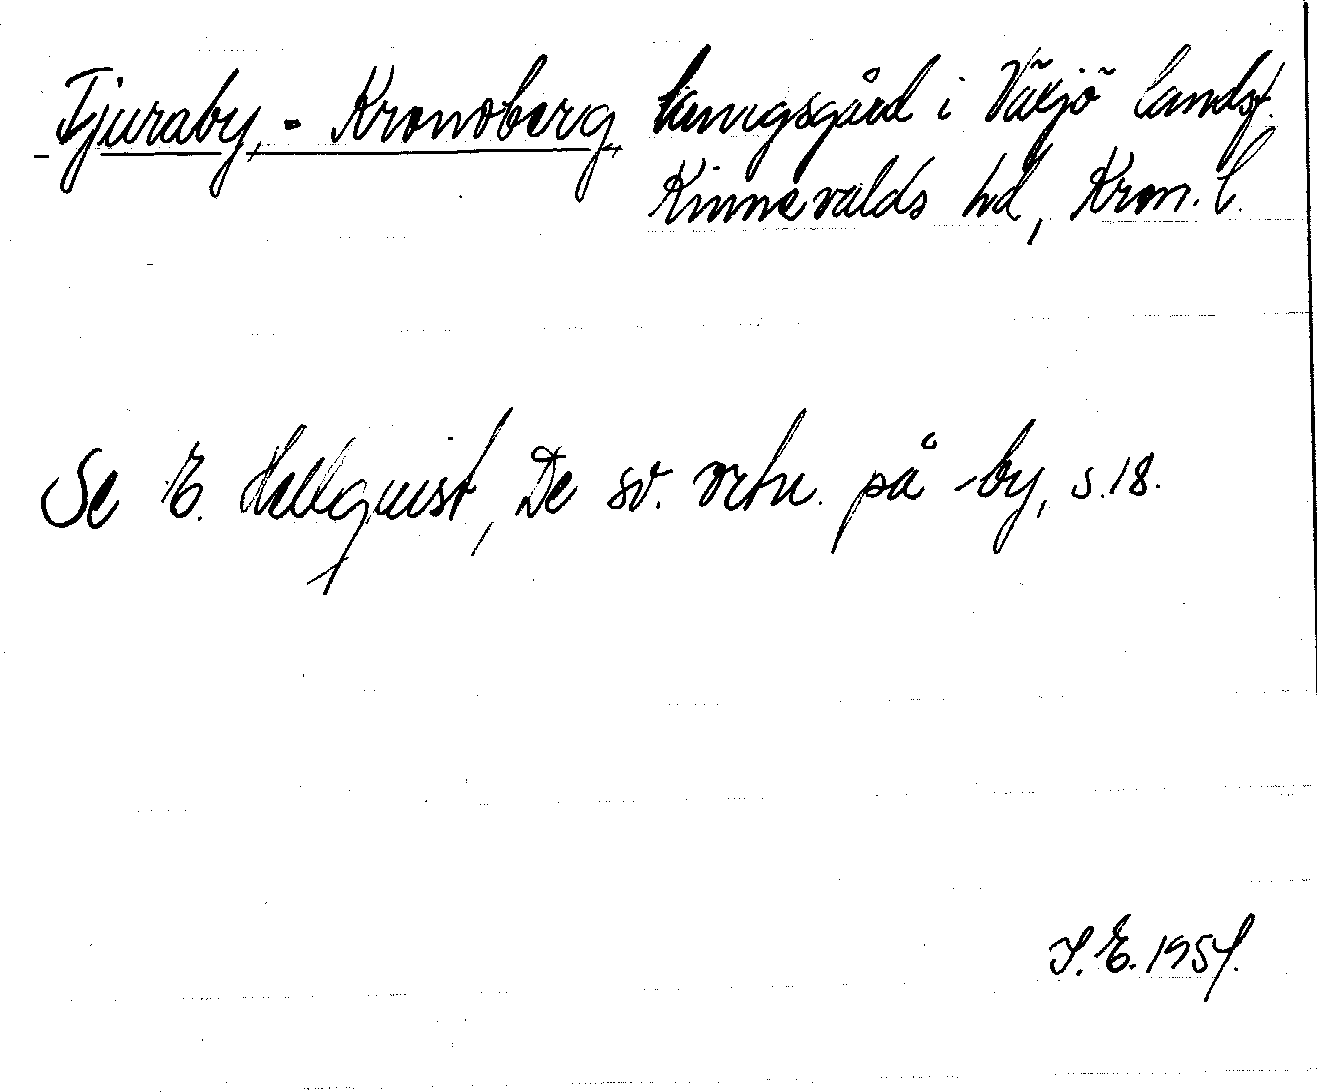 Tjuraby, - Kronoberg kungsgård i Växjö landsf.
Kinnevalds hd, Kron. l.
Se E. Hellquist, De sv. ortn. på -by, s. 18.
S. E. 1954.